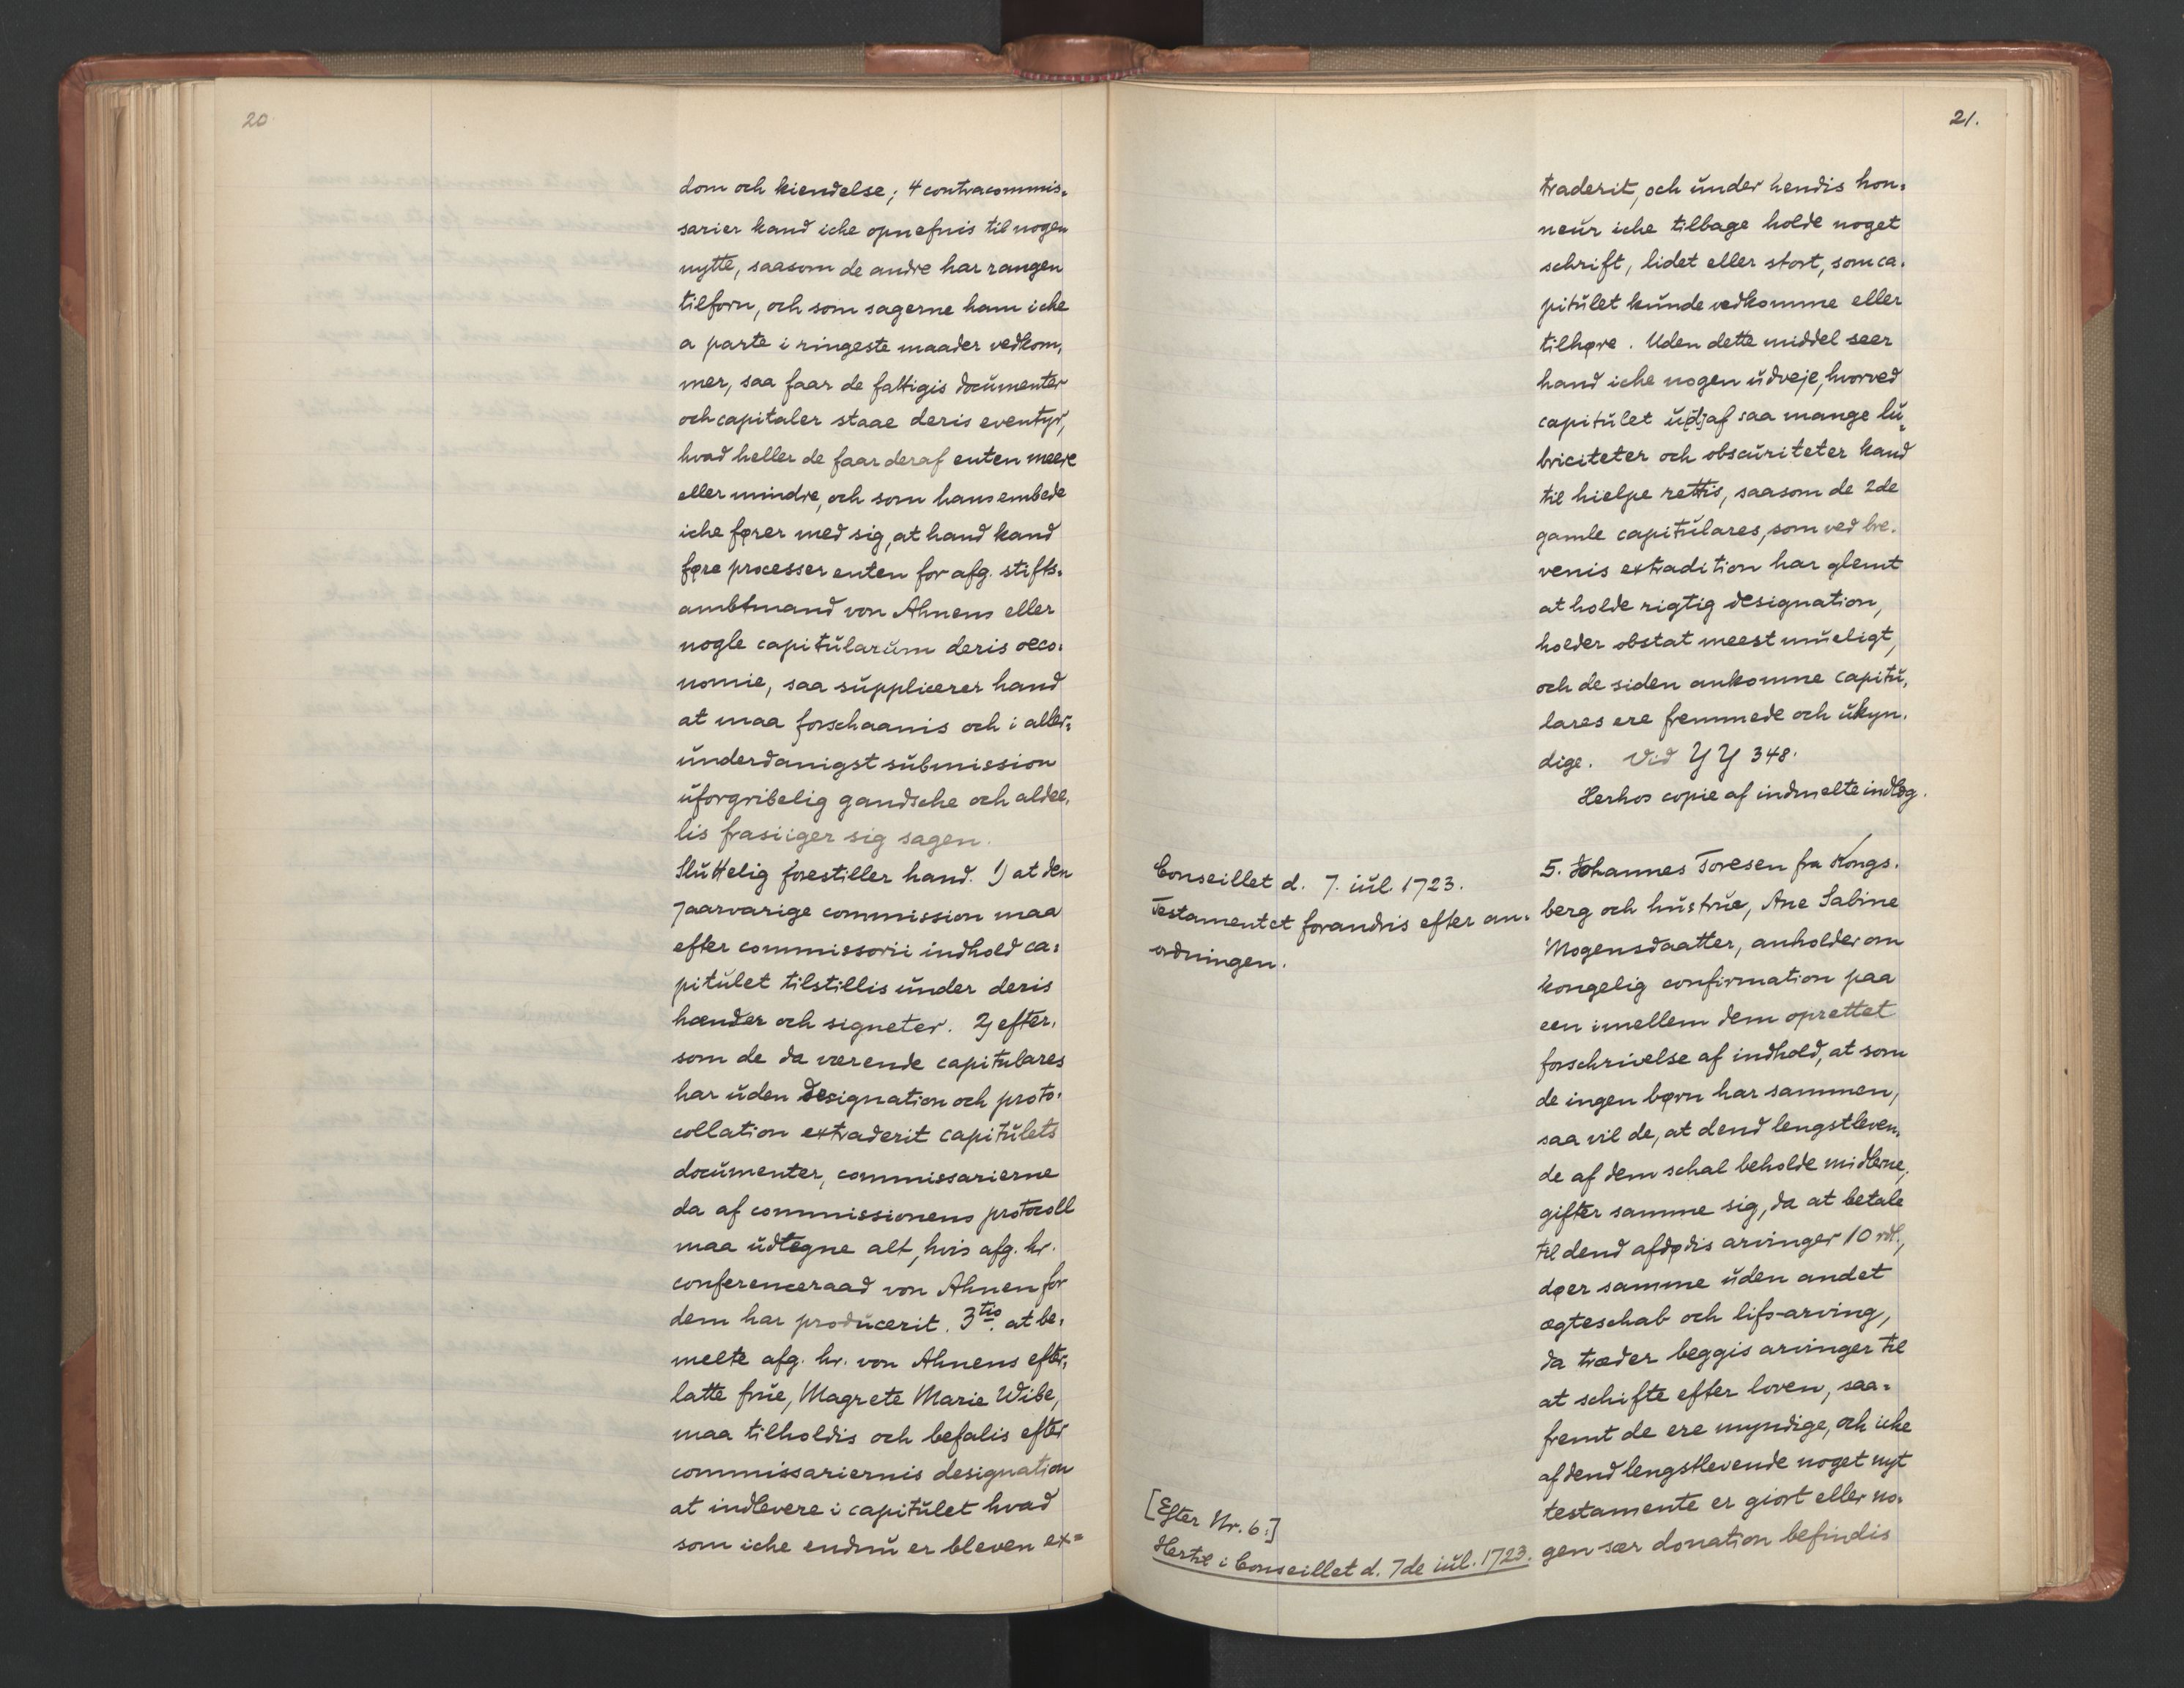 20
dom och kiendelse; 4 contracommis-
sarier kand iche opnefnis til nogen
nytte, saasom de andre har rangen
tilforn, och som sagerne ham iche
a parte i ringeste maader vedkom-
mer, saa faar de fattigis documenter
och capitaler staae deris eventyr,
hvad heller de faar deraf enten meere
eller mindre, och som hans embede
iche fører med sig, at hand kand
føre processer enten for afg. stifts-
ambtmand von Ahnens eller
nogle capitularum deris oeco-
nomie, saa supplicerer hand
at maa forschaanis och i aller-
underdanigst submission
uforgribelig gandsche och aldee-
lis frasiiger sig sagen.
Sluttelig forestiller hand. 1) at den
7 aarvarige commission maa
efter commissorii indhold ca-
pitulet tilstillis under deris
hænder och signeter. 2) efter-
som de da værende capitulares
har uden designation och proto-
collation extraderit capitulets
documenter, commissarierne
da af commissionens protocoll
maa udtegne alt, hvis afg. hr.
conferenceraad von Ahnen for
dem har producerit. 3tio. at be-
melte afg. hr. von Ahnens efter-
latte frue, Magrete Marie Wibe,
maa tilholdis och befalis efter
commissariernis designation
at indlevere i capitulet hvad
som iche endnu er bleven ex=
21.
traderit, och under hendis hon-
neur iche tilbage holde noget
schrift, lidet eller stort, som ca-
pitulet kunde vedkomme eller
tilhøre. Uden dette middel seer
hand iche nogen udveje, hvorved
capitulet u[d]af saa mange lu-
briciteter och obscuriteter kand
til hielpe rettis, saasom de 2de
gamle capitulares, som ved bre-
venis extradition har glemt
at holde rigtig designation,
holder obstat meest mueligt,
och de siden ankomne capitu-
lares ere fremmede och ukyn-
dige. Vid YY 348.
Herhos copie af indmelte indlæg.
Conseillet d. 7. iul. 1723.
Testamentet forandris efter an-
ordningen.
5. Johannes Toresen fra Kongs-
berg och hustrue, Ane Sabine
Mogensdaatter, anholder om
kongelig confirmation paa
een imellem dem oprettet
forschrivelse af indhold, at som
de ingen børn har sammen,
saa vil de, at dend lengstleven-
de af dem schal beholde midlerne,
gifter samme sig, da at betale
til dend afdødis arvinger 10 rdl.,
døer samme uden andet
ægteschab och lifs-arving,
da træder beggis arvinger til
at schifte efter loven, saa-
fremt de ere myndige, och iche
af dend lengstlevende noget nyt
testamente er giort eller no-
gen sær donation befindis
[Efter Nr. 6:]
Hertil i Conseillet d. 7de iul. 1723.